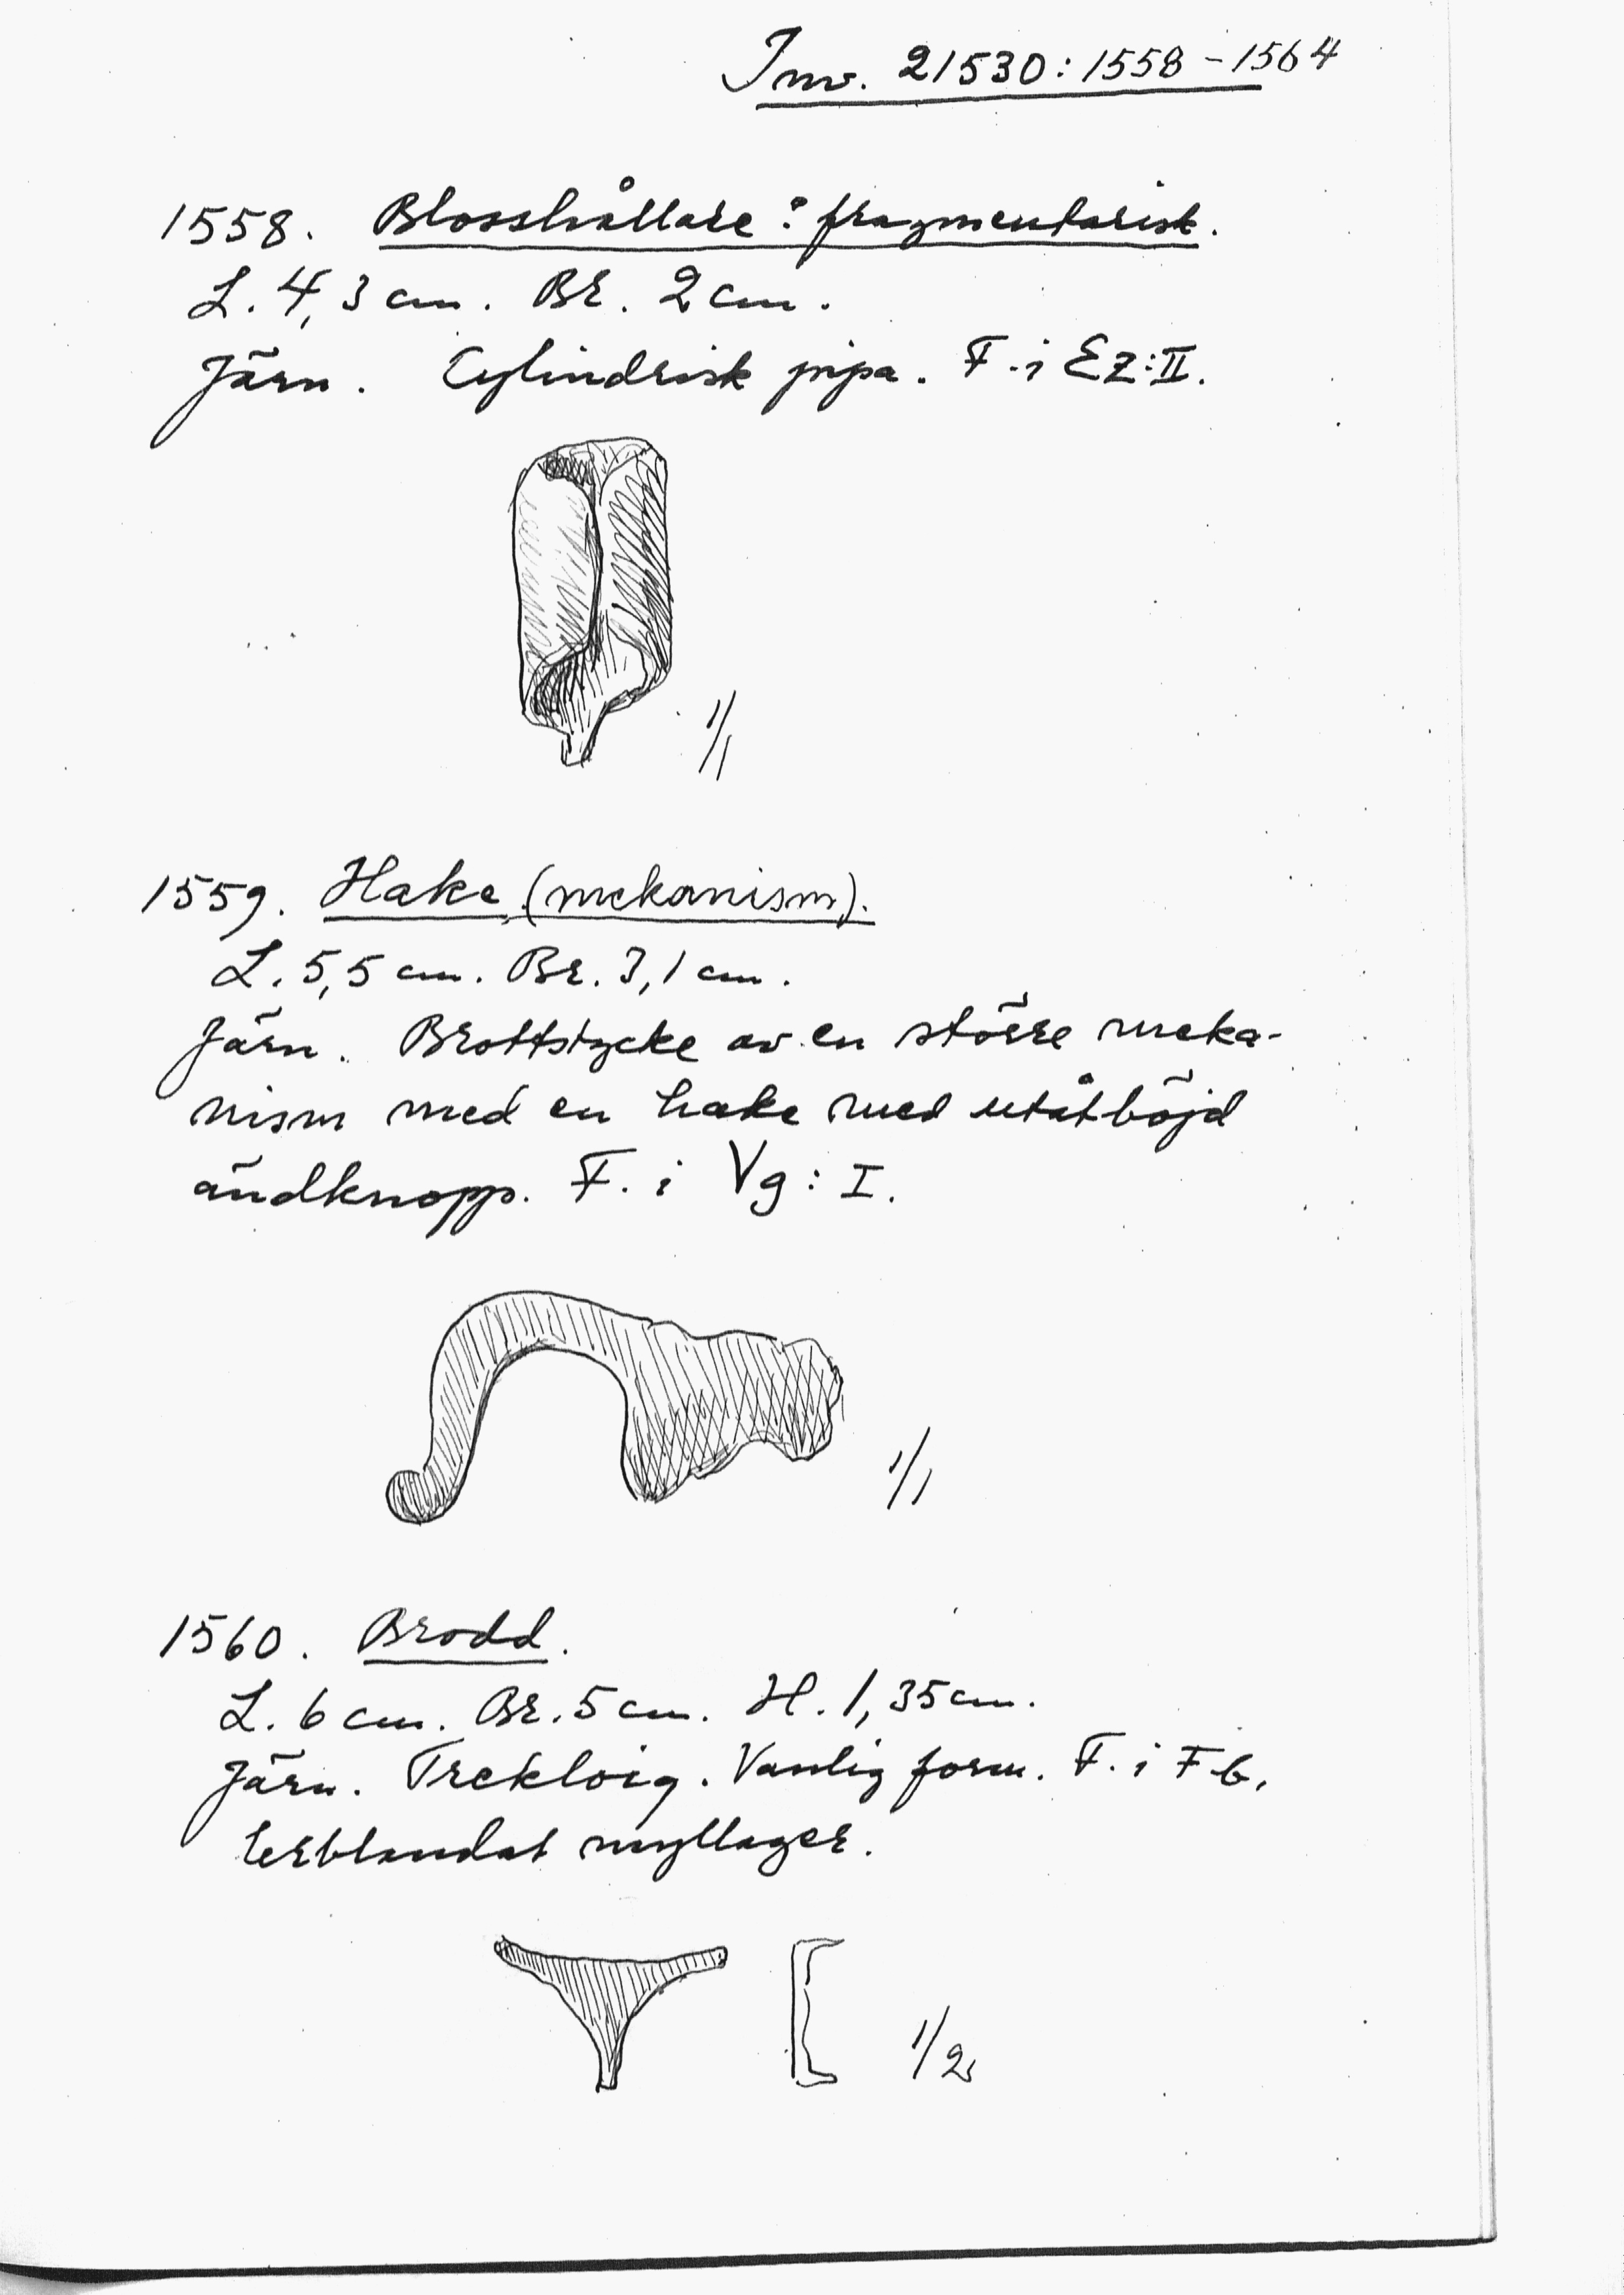 Inv. 21530:1558-1564
1558. Blosshållare? fragmentarisk.
L. 4,3 cm. Br. 2 cm.
Järn. Cylindrisk pipa. F. i Ez:II.
1/1
1559. Hake (mekanism).
L. 5,5 cm. Br. 3,1 cm.
Järn. Brottstycke av en större meka-
nism med en hake med utåtböjd
ändknopp. F. i Vg: I.
1/1
1560. Brodd.
L. 6 cm. Br. 5 cm. H. 1,35 cm.
Järn. Trekloig. Vanlig form. F. i Fb,
lerblandat myllager.
1/2